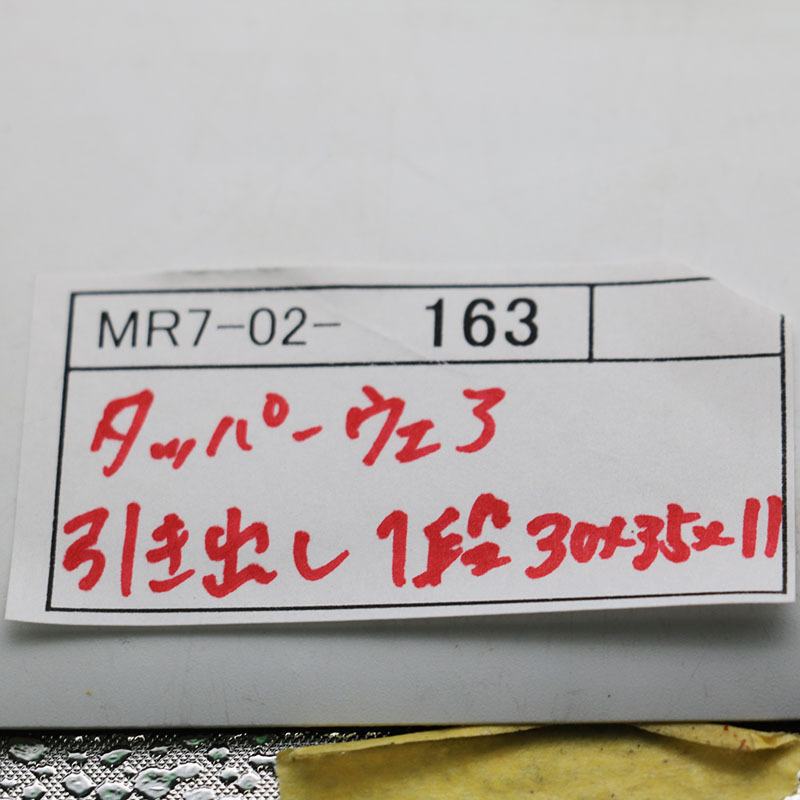 MR7-02- 163
タッパーウェア
引き出し 1段 30×35×11